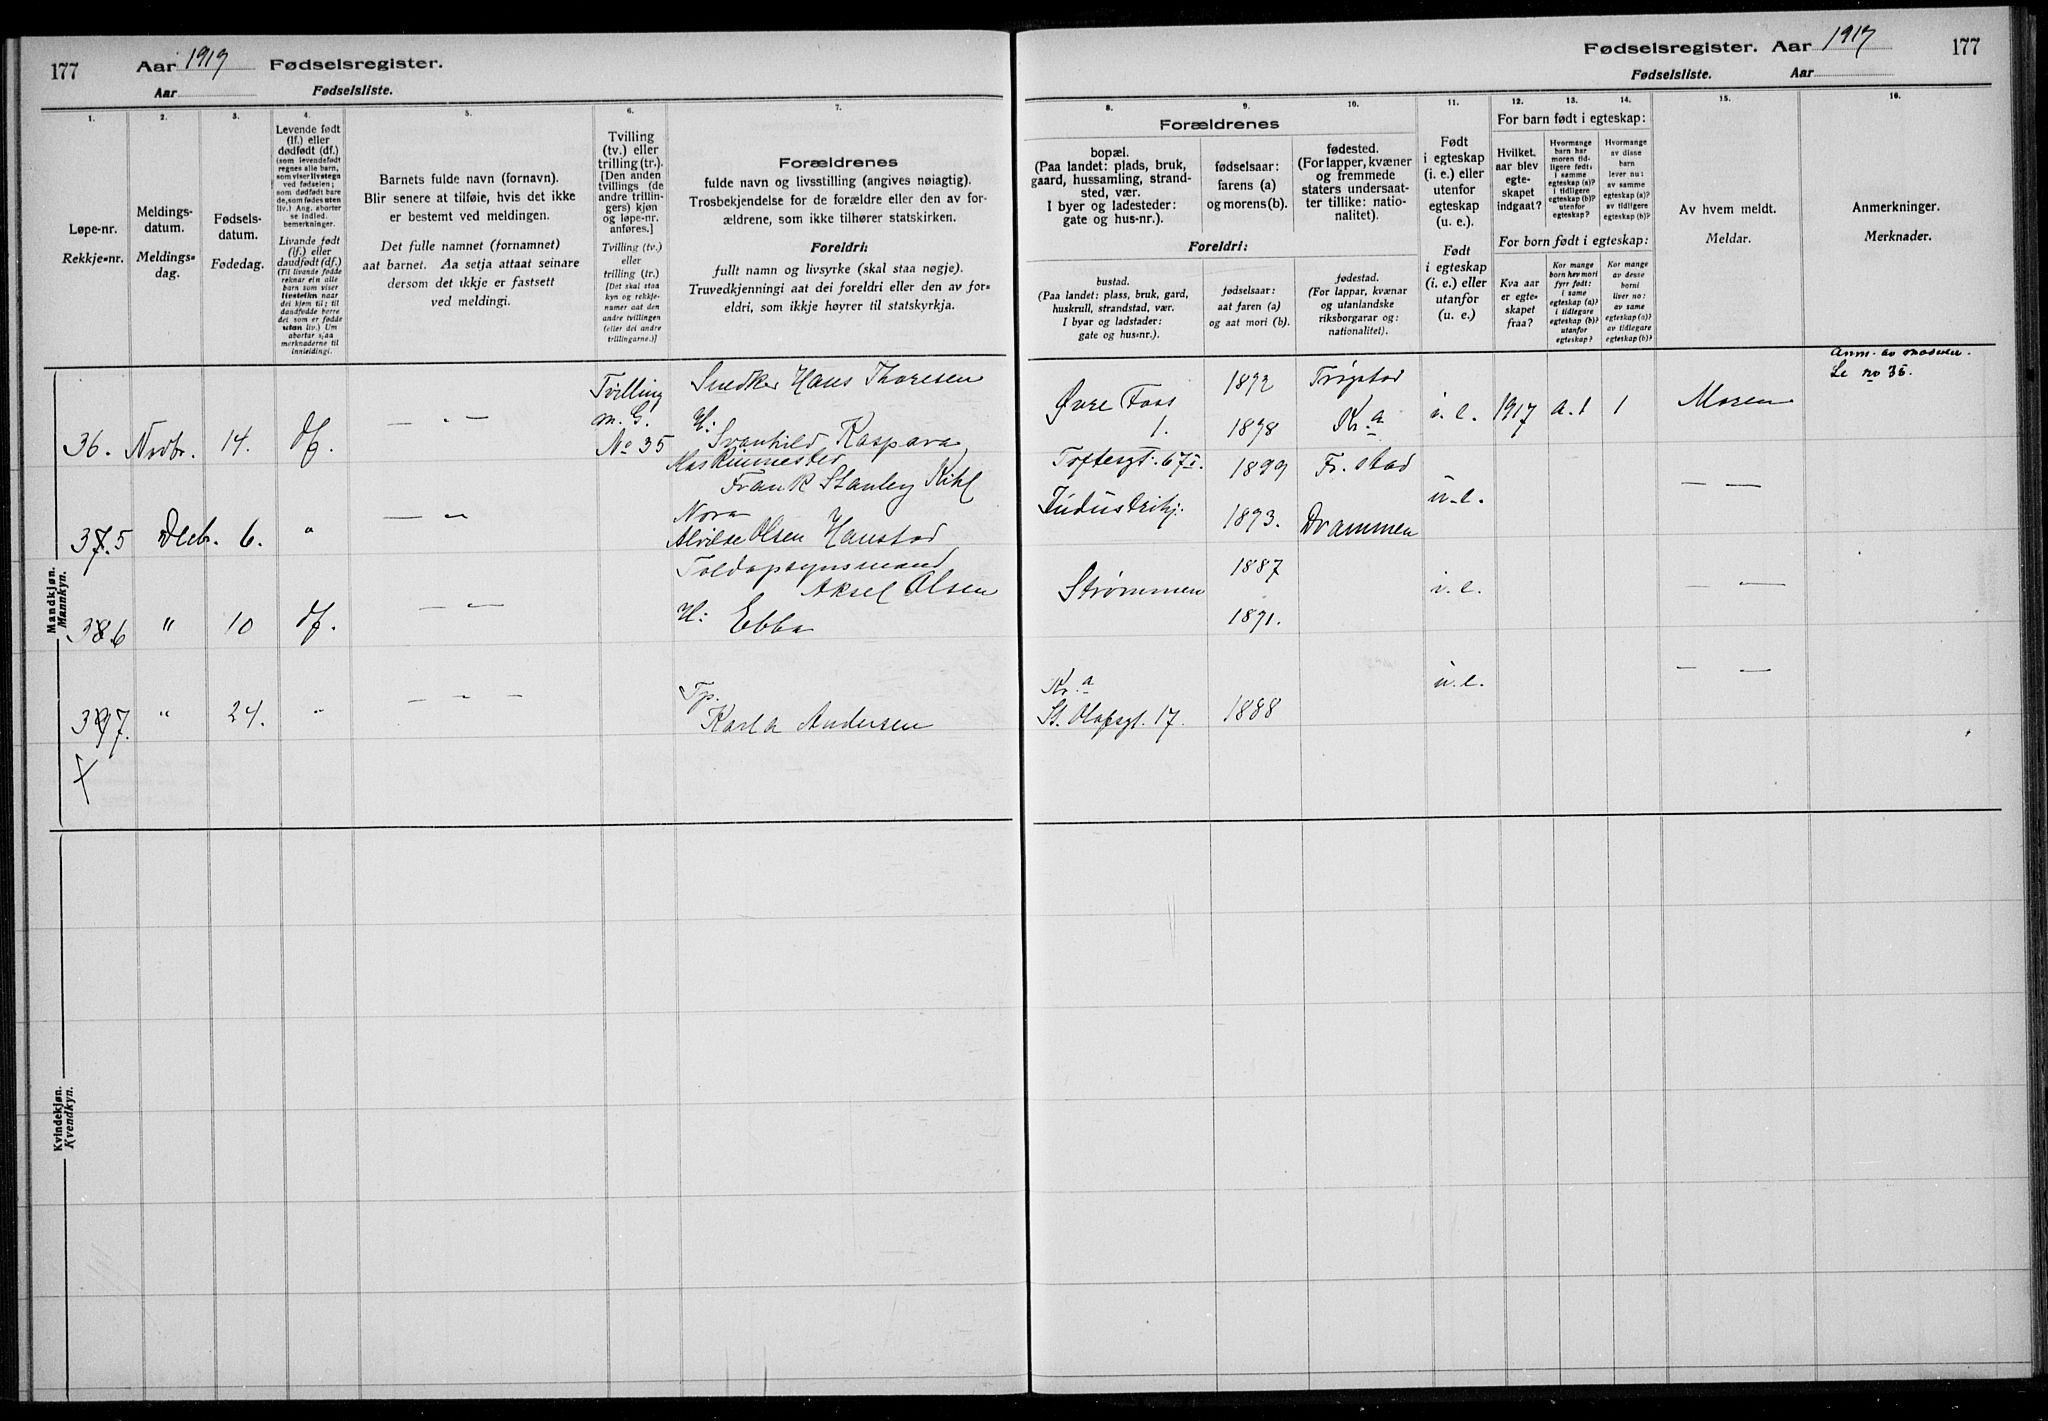 177 Aar 1919 Fødselsregister.
Aar Fødselsliste.
1.
Løpe-nr.
Rekkje-nr.
2.
Meldings-
datum.
Meldings-
dag.
3.
Fødsels-
datum.
Fødedag.
4.
Levende født
(lf.) eller
dødfødt (df.)
(som levendefødt
regnes alle barn,
som viser livstegn
ved fødselen;
som dødfødt bare
de, som fødes uten
liv.) Ang. aborter
se indled.
bemerkninger.
Livande født
(lf.) eller
daudfødt (df.)
(Til livande fødde
reknar ein alle
born som viser
livsteikn naar
dei kjem til; til
daudfødde berre
dei som er fødde
utan liv.) Um
abortar sjaa
merknaderne til
innleidingi.
5.
Barnets fulde navn (fornavn).
Blir senere at tilføie, hvis det ikke
er bestemt ved meldingen.
Det fulle namnet (fornamnet)
aat barnet. Aa setja attaat seinare
dersom det ikkje er fastsett
ved meldingi.
6.
Tvilling
(tv.) eller
trilling (tr.).
[Den anden
tvillings (de
andre trillin-
gers) kjøn
og løpe-nr.
anføres.]
Tvilling (tv.)
eller
trilling (tr.)
[Det skal staa
kyn og rekkje-
numer aat den
andre tvillingen
(eller dei andre
trillingarne.)]
7.
Forældrenes
fulde navn og livsstilling (angives nøiagtig).
Trosbekjendelse for de forældre eller den av for-
ældrene, som ikke tilhører statskirken.
Foreldri:
fullt namn og livsyrke (skal staa nøgje).
Truvedkjenningi aat dei foreldri eller den av for-
eldri, som ikkje høyrer til statskyrkja.
Mandkjøn.
Mannkyn.
36. Novbr. 14. df. — " — Tvilling
m. G.
No 35
Snedker Hans Thoresen
H: Svanhild Kaspara
37.5 Decbr. 6. " — " —
Maskinmester
Frank Stanley Kihl
Nora
Alvilde Olsen Hanstad
38 6 " 10 df. — " —
Toldopsynsmand
Aksel Olsen
H: Ebba
39 7. " 24. " — " —
Tp.
Karla Andersen
Kvindekjøn.
Kvendkyn.
Fødselsregister. Aar 1917 177
Fødselsliste. Aar
Forældrenes
8.
bopæl.
(Paa landet: plads, bruk,
gaard, hussamling, strand-
sted, vær.
I byer og ladesteder:
gate og hus-nr.).
9.
fødselsaar:
farens (a)
og morens (b).
10.
fødested.
(For lapper, kvæner
og fremmede
staters undersaat-
ter tillike: natio-
nalitet).
Foreldri:
bustad.
(Paa landet: plass, bruk, gard,
huskrull, strandstad, vær.
I byar og ladstader:
gate og hus-nr.).
fødselsaar:
aat faren (a)
og aat mori (b).
fødestad.
(For lappar, kvænar
og utanlandske
riksborgarar og:
nationalitet).
11.
Født
i egteskap
(i. e.) eller
utenfor
egteskap
(u. e.).
Født
i egteskap
(i. e.) eller
utanfor
(u. e.)
For barn født i egteskap:
12.
Hvilket
aar blev
egte-
skapet
indgaat?
13.
Hvormange
barn har
moren tid-
ligere født:
i samme
egteskap (a)?
i tidligere
egteskap (b)?
utenfor
egteskap?
14.
Hvormange
av disse
barn
lever nu:
av samme
egteskap (a)?
av tidligere
egteskap (b)?
For born født i egteskap:
Kva aar
er egte-
skapet
fraa?
Kor mange
born hev mori
fyrr født:
i same
egteskap (a)?
i tidlegare
egteskap (b)?
utanfor
egteskap?
Kor mange
av desse
borni
liver no:
av same
egteskap (a)?
av tidlegare
egteskap (b)?
15.
Av hvem meldt.
Meldar.
16.
Anmerkninger.
Merknader.
Øvre Foss
1. 1892 Trøgstad
1898 Kr.a i. e. 1917 a. 1 1 Moren
Se no 35.
Toftesgt. 67 I. 1899 Fr. stad
1893. Drammen u. e. — —
Strømmen 1887
1891. i. e. — —
Kr.a
St. Olafsgt. 17. 1888 u. e. — —